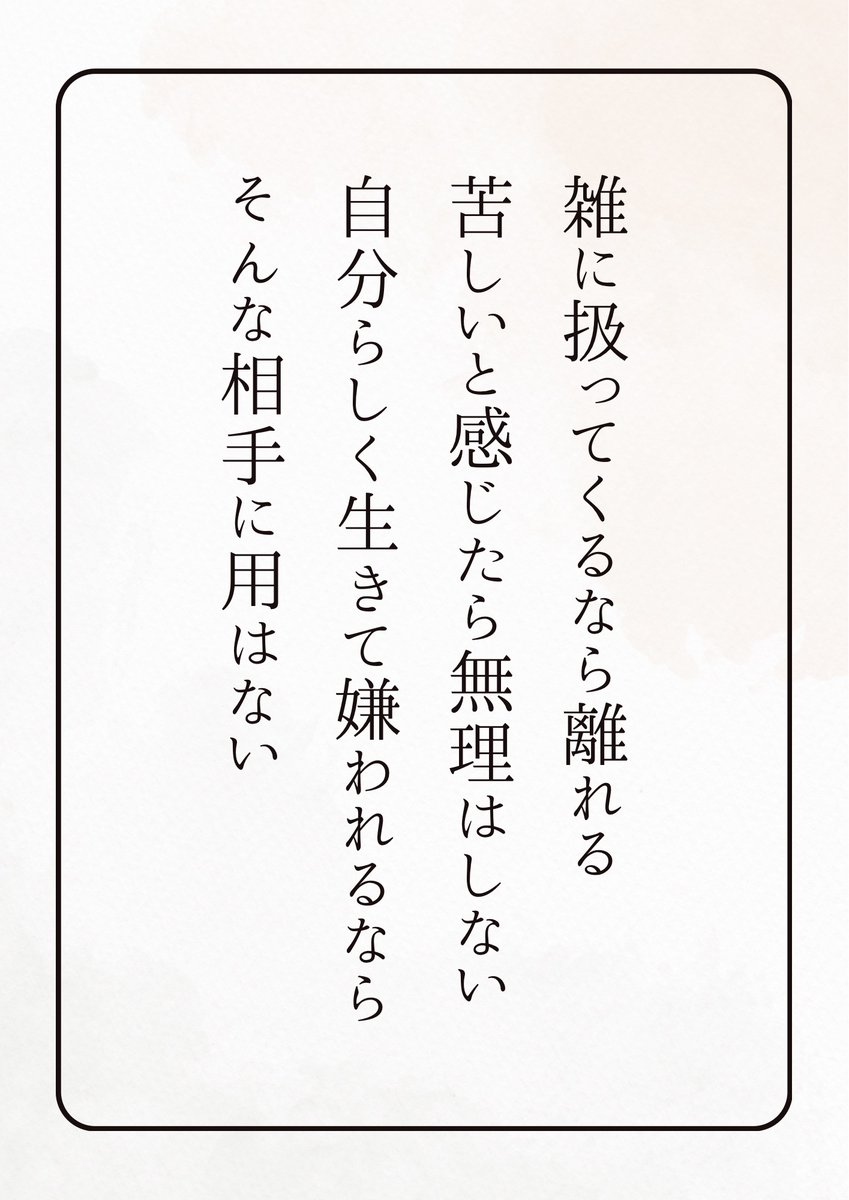 雑に扱ってくるなら離れる
苦しいと感じたら無理はしない
自分らしく生きて嫌われるなら
そんな相手に用はない